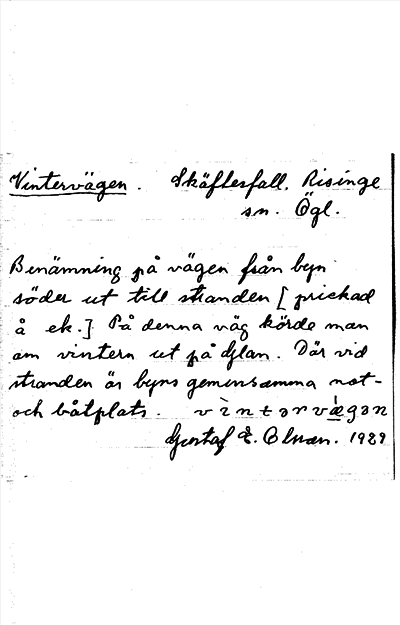 Vintervägen. Skäftesfall. Risinge
sn. Ögl.
Benämning på vägen från byn
söder ut till stranden [prickad
å ek.] På denna väg körde man
om vintern ut på Glan. Där vid
stranden är byns gemensamma not-
och båtplats. vìntərvæ̀gən
Gustaf E. 1929